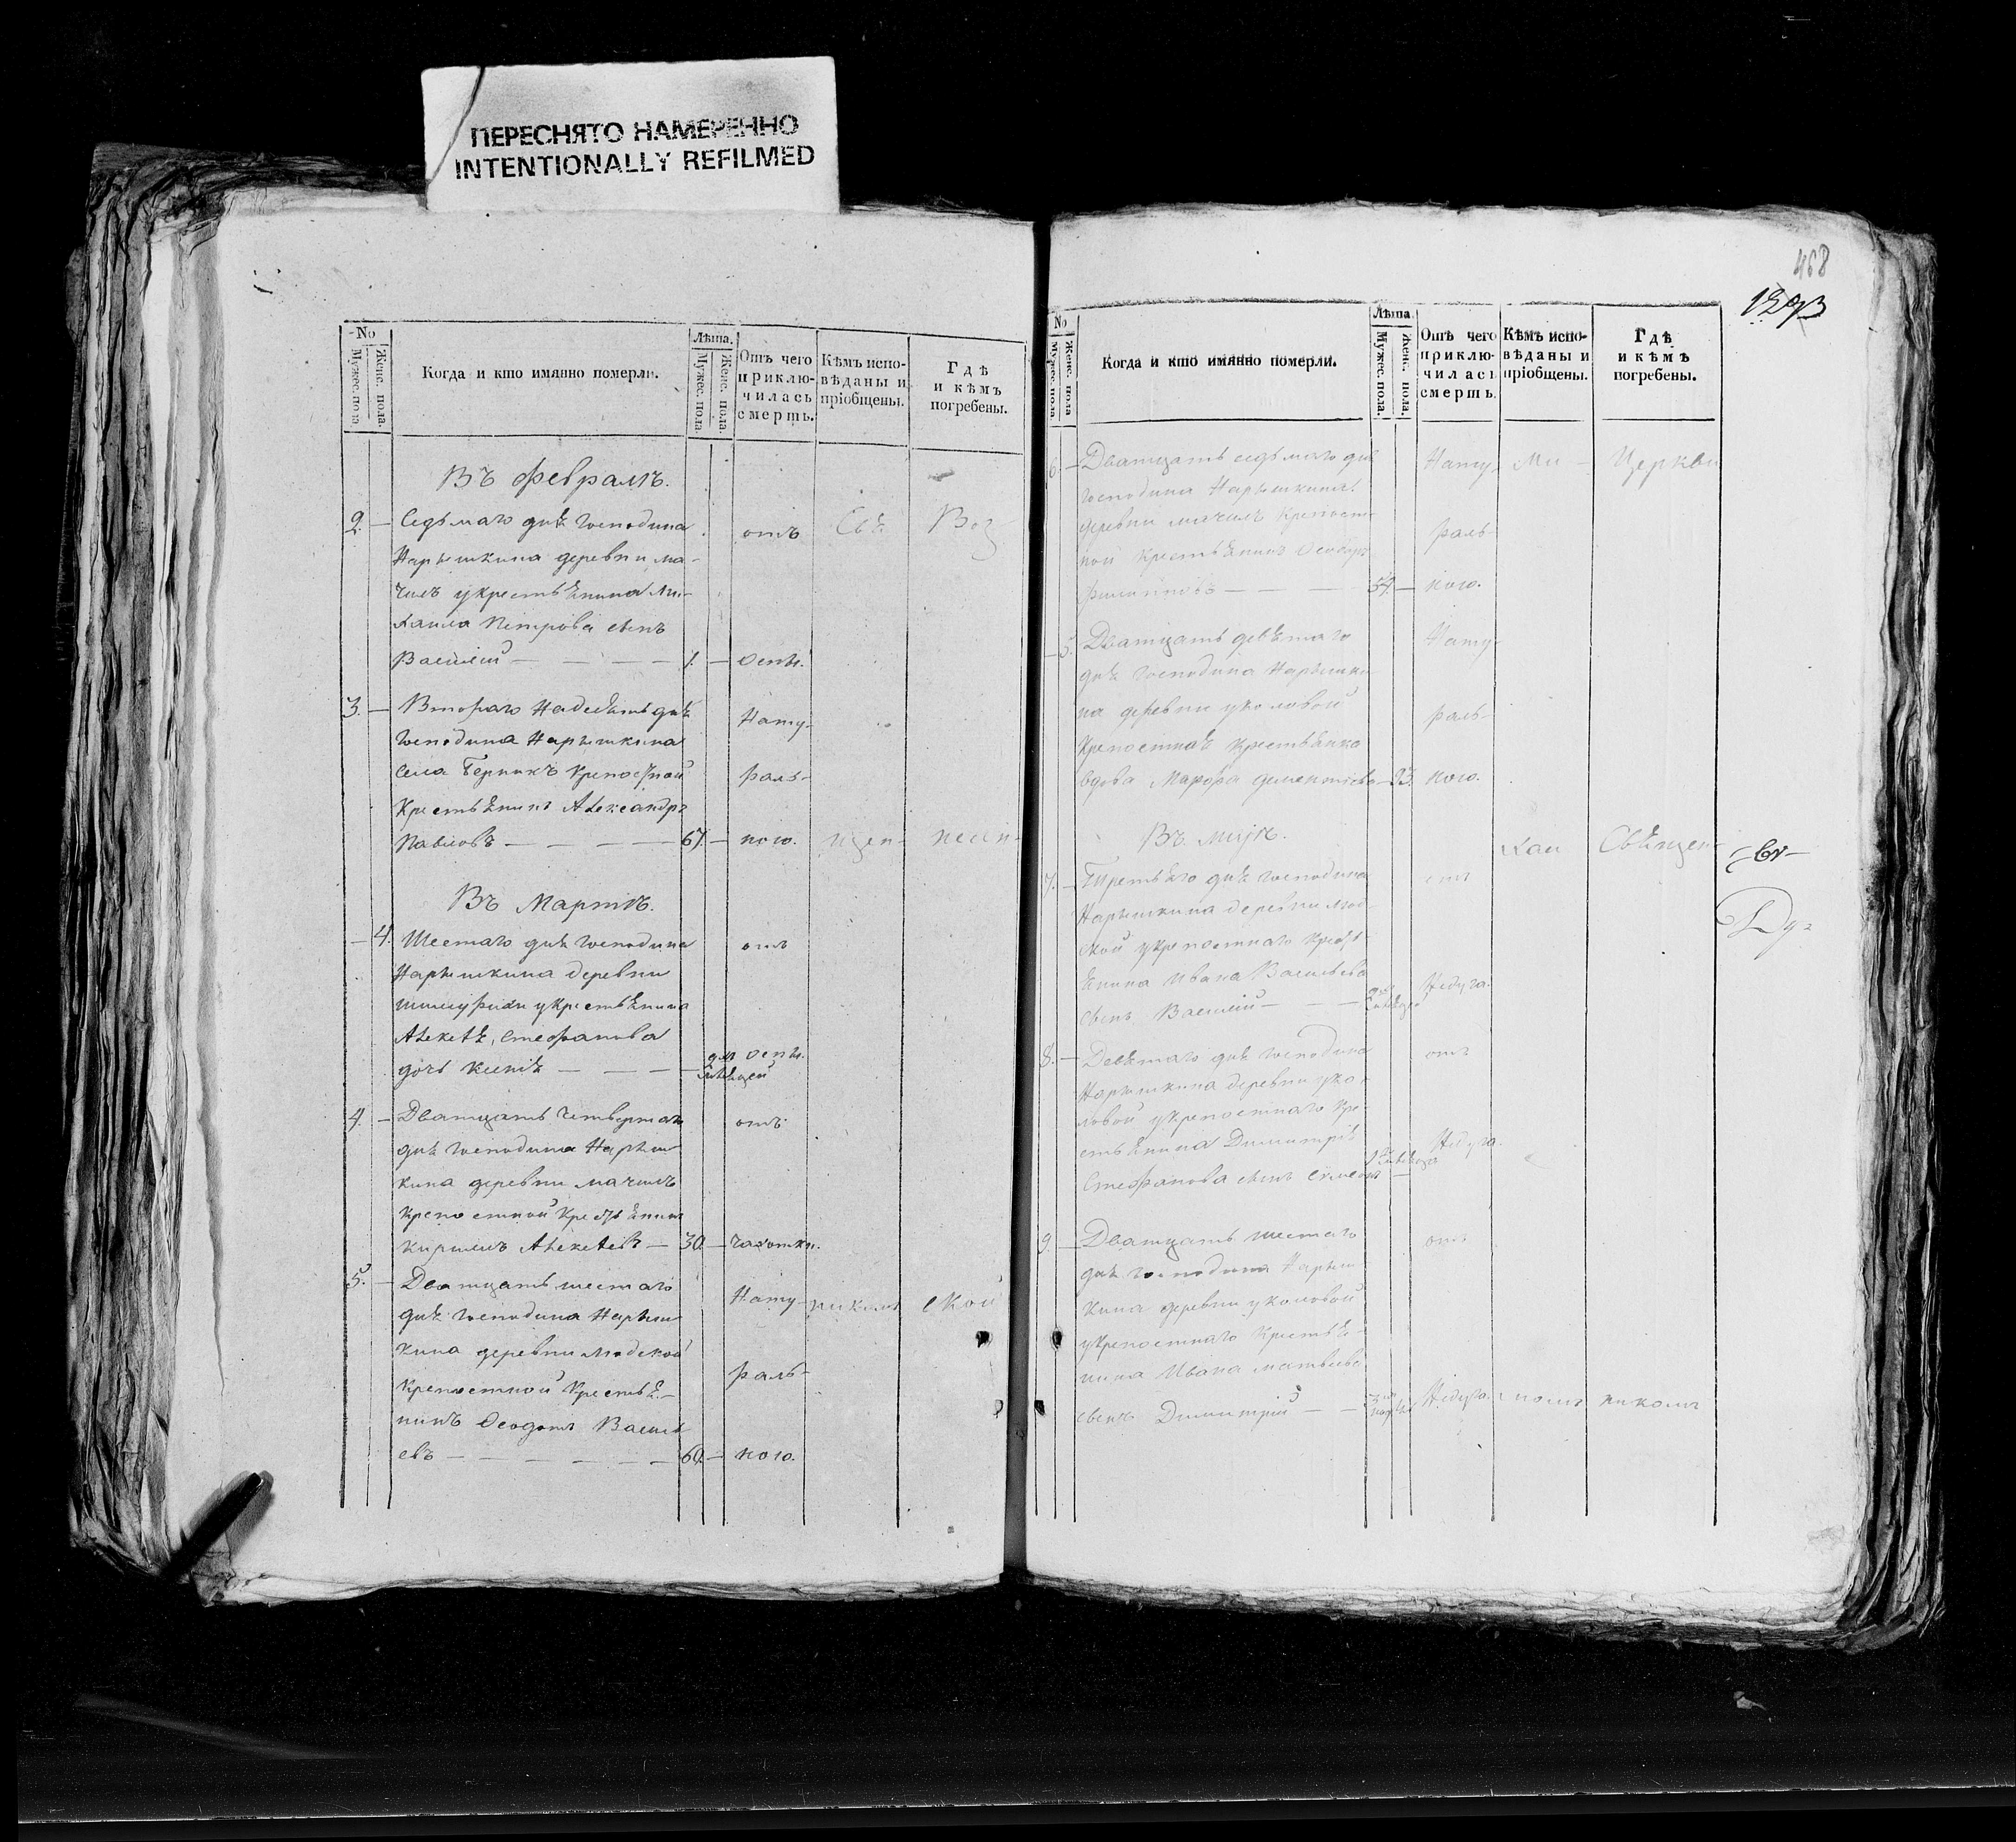 ПЕРЕСНЯТО НАМЕРЕННО
INTENTIONALLY REFILMED
No
Мужес. пола
Женс. пола.
Когда и кто имянно померли.
Лѣта.
Мужес. пола
Женс. пола.
Отъ чего приключилась смерть.
Кѣмъ исповѣданы и пріобщены.
Гдѣ и кѣмъ погребены.
Въ февралѣ.
2. — Седьмаго дня господина
Нарышкина деревни ма-
чилъ у крестьянина Ми-
хаила Петрова сынъ
Василій — — — — 1. — оспы.
отъ
Свя
Воз
3. — Втораго Надесять дня
господина Нарышкина
села Берникъ крепостной
Крестьянинъ Александръ
Павловъ — — — — 67. — Нату-
раль-
ного.
щен-
несен-
Въ Мартѣ.
— 4. Шестаго дня господина
Нарышкина деревни
у крестьянина
Алексѣя Стефанова
дочь Ксенія — — —
отъ
оспы.
4. — Дватцать четвертаго
дня господина Нарыш
кина деревни мачилъ
крепостной Крестьянинъ
Кирилъ Алексѣевъ — 30. — чахотки.
отъ
5. — Дватцать шестаго
дня господина Нарыш
кина деревни Людской
Крепостной Крестья-
нинъ Феодотъ Василь
евъ — — — — — — 60. — Нату-
раль-
ного.
никомъ
ской
468
No
Мужес. пола
Женс. пола
Когда и кто имянно померли.
Лѣта.
Мужес. пола.
Женс. пола.
Отъ чего приключилась смерть.
Кѣмъ исповѣданы и пріобщены.
Гдѣ и кѣмъ погребены.
6. — Дватцать седьмаго дня
господина Нарышкина
деревни мачилъ Крепост-
ной Крестьянинъ Феодоръ
Филиповъ — — — 54. — Нату-
раль-
ного.
Ми
Церкви
— 5. Дватцать девятаго
дня господина Нарышки
на деревни уколовой
Крепостная крестьянка
вдова Марфа Дементіева — 93. Нату-
раль-
ного.
Въ маіѣ.
7. — Третьяго дня господина
Нарышкина деревни Люд-
ской у крепостнаго Кресть-
янина Ивана Васильева
сынъ Василій — — —
отъ
Недуга.
хаи
Священ-
Ду-
8. — Девятаго дня господина
Нарышкина деревни уко-
ловой у крепостнаго Кре-
стьянина Димитрія
Стефанова сынъ Сѵмеонъ
отъ
Недуга.
9. — Дватцать шестаго
дня господина Нарыш
кина деревни уколовой
у крепостнаго Крестья-
нина Ивана Матвѣева
сынъ Димитрій — —
отъ
Недуга.
ломъ
никомъ